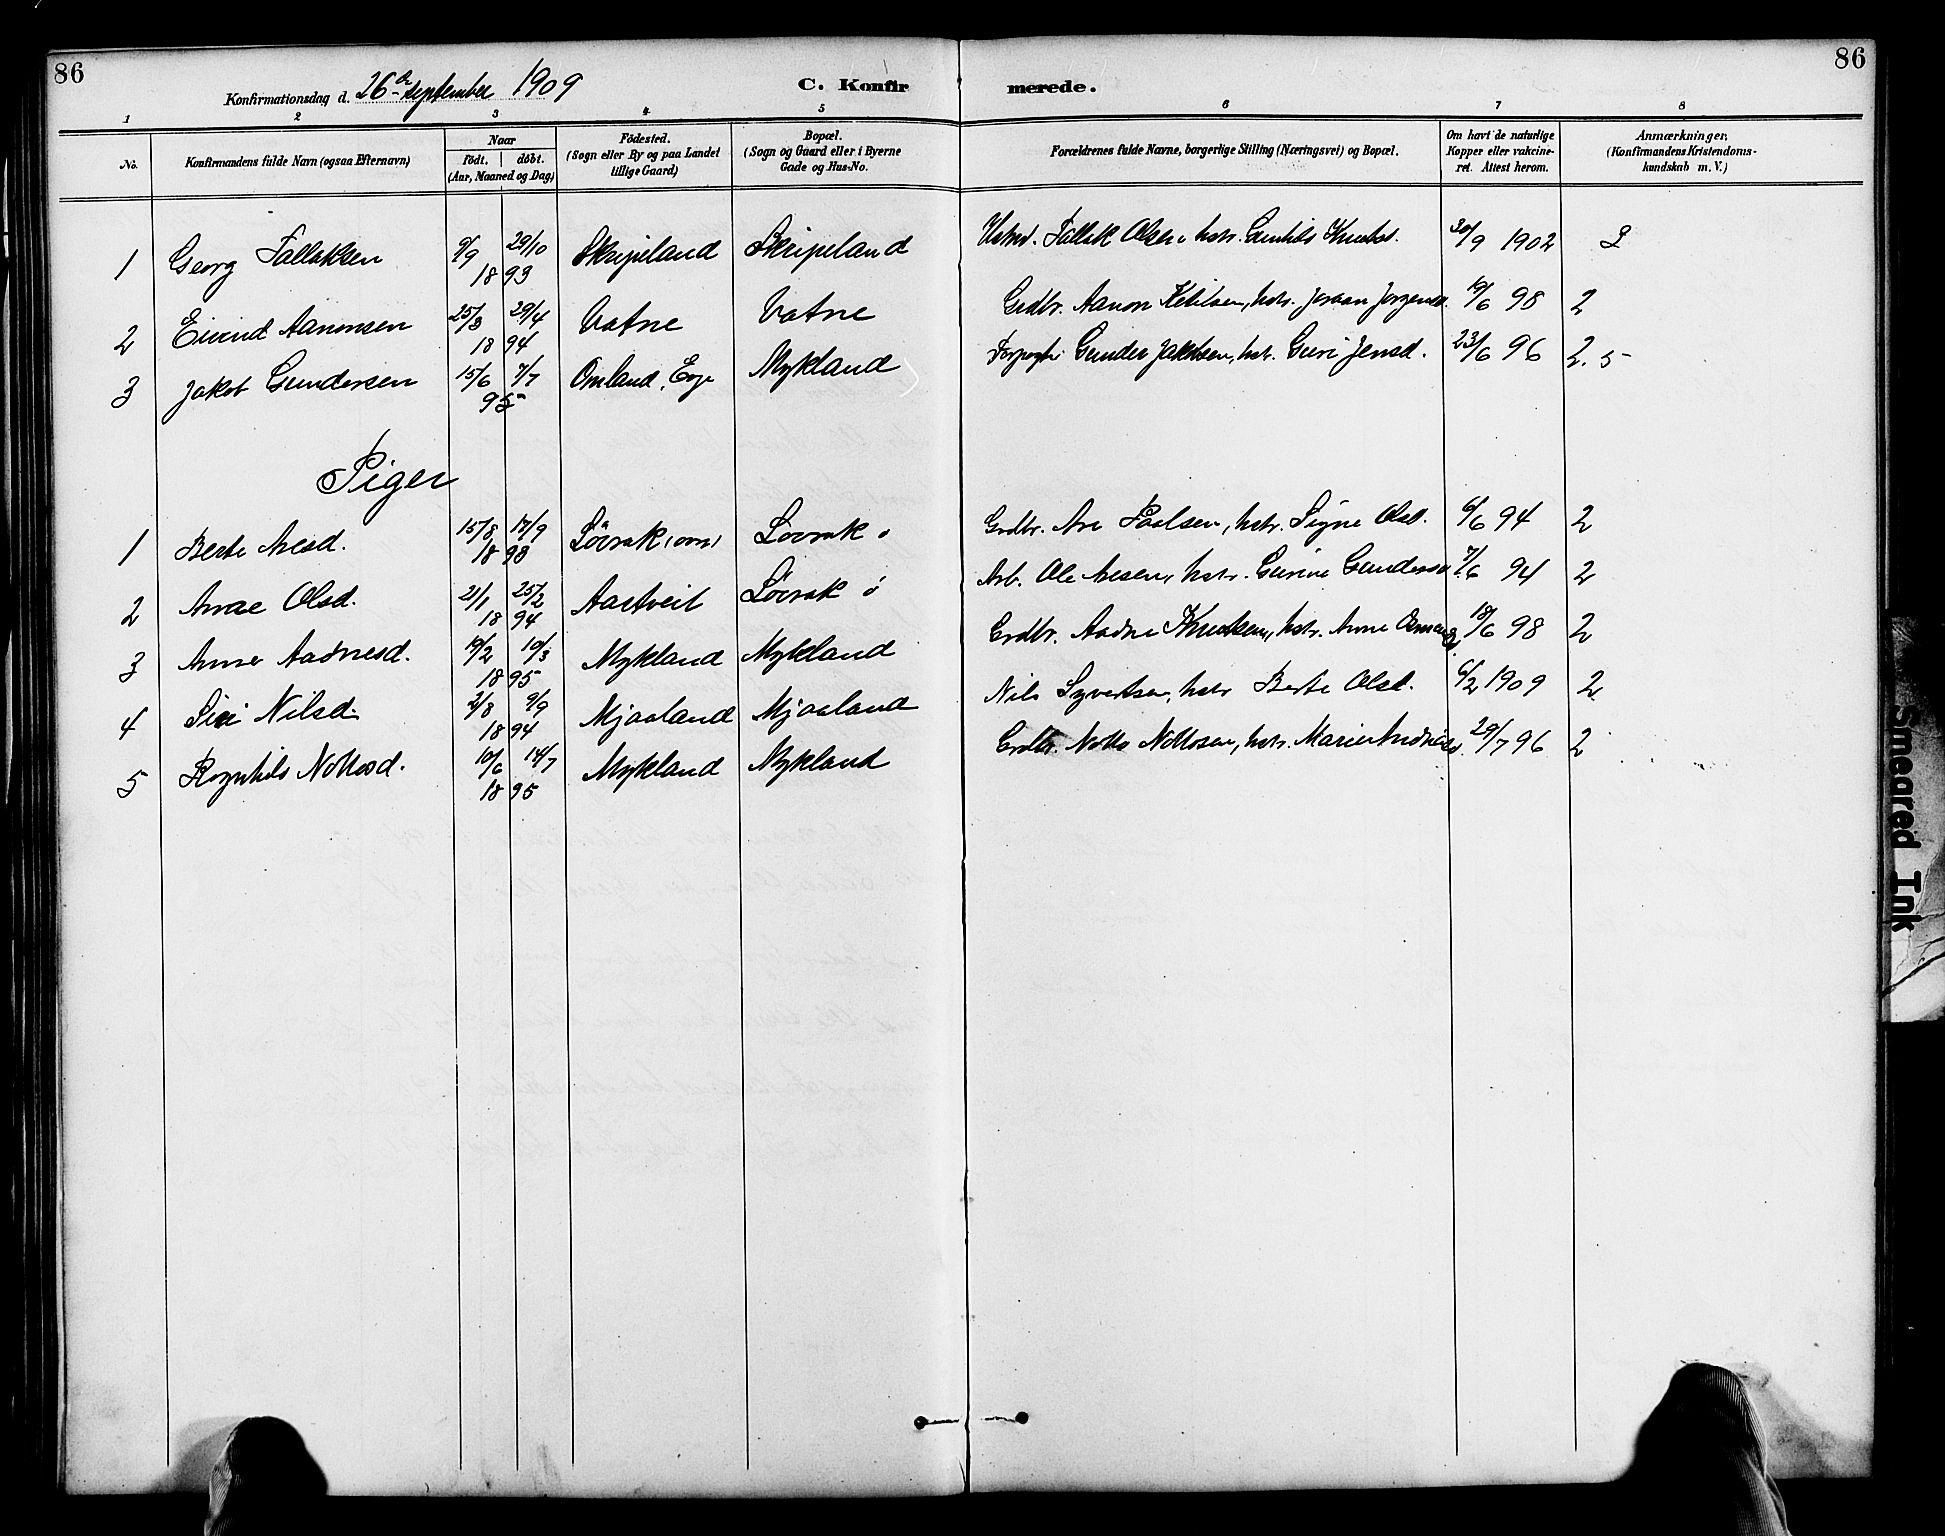 86
86
Konfirmationsdag d. 26de september 1909
C. Konfirmerede.
1 2 3 4 5 6 7 8
No.
Konfirmandens fulde Navn (ogsaa Efternavn)
Naar
födt. | döbt.
(Aar, Maaned og Dag)
Födested.
(Sogn eller By og paa Landet
tillige Gaard)
Bopæl.
(Sogn og Gaard eller i Byerne
Gade og Hus-No.
Forældrenes fulde Navne, borgerlige Stilling (Næringsvei) og Bopæl.
Om havt de naturlige
Kopper eller vakcine-
ret. Attest herom.
Anmærkninger,
(Konfirmandens Kristendoms-
kundskab m. V.)
1 Georg Fallaksen 9/9 29/10 1893 Skripeland Skripeland Fallak Olsen, hstr. Gunhild Knutsd. 30/9 1902 2
2 Eivind Aanonsen 25/3 29/4 1894 Vatne Vatne Grdbr. Aanon Ketilsen, hstr. Joraan Jorgensd. 19/6 98 2
3 Jakob Gundersen 15/6 7/7 95 Omland, Evje Mykland Forpagter Gunder Jakobsen, hstr. Guri Jensd. 23/6 96 2.5
Piger
1 Berte Aresd. 15/8 17/9 1893 Lövrak Lovrak ö Grdbr. Are Paalsen, hstr. Signe Olsd. 6/6 94 2
2 Anne Olsd. 21/1 25/2 1894 Aastveit Lövrak ö Arb. Ole Aresen, hstr. Gurine Gundersd. 7/6 94 2
3 Anne Aadnesd. 19/2 10/3 1895 Mykland Mykland Grdbr. Aadne Knutsen, hstr. Anne 18/6 98 2
4 Siri Nilsd. 2/8 9/9 1894 Mjaaland Mjaaland Nils Syvertsen, hstr. Berte Olsd. 6/2 1909 2
5 Ragnhild Nottosd. 10/6 14/7 1895 Mykland Mykland Grdbr. Notto Nottosen, hstr. Marie 29/7 96 2
Smeared Ink